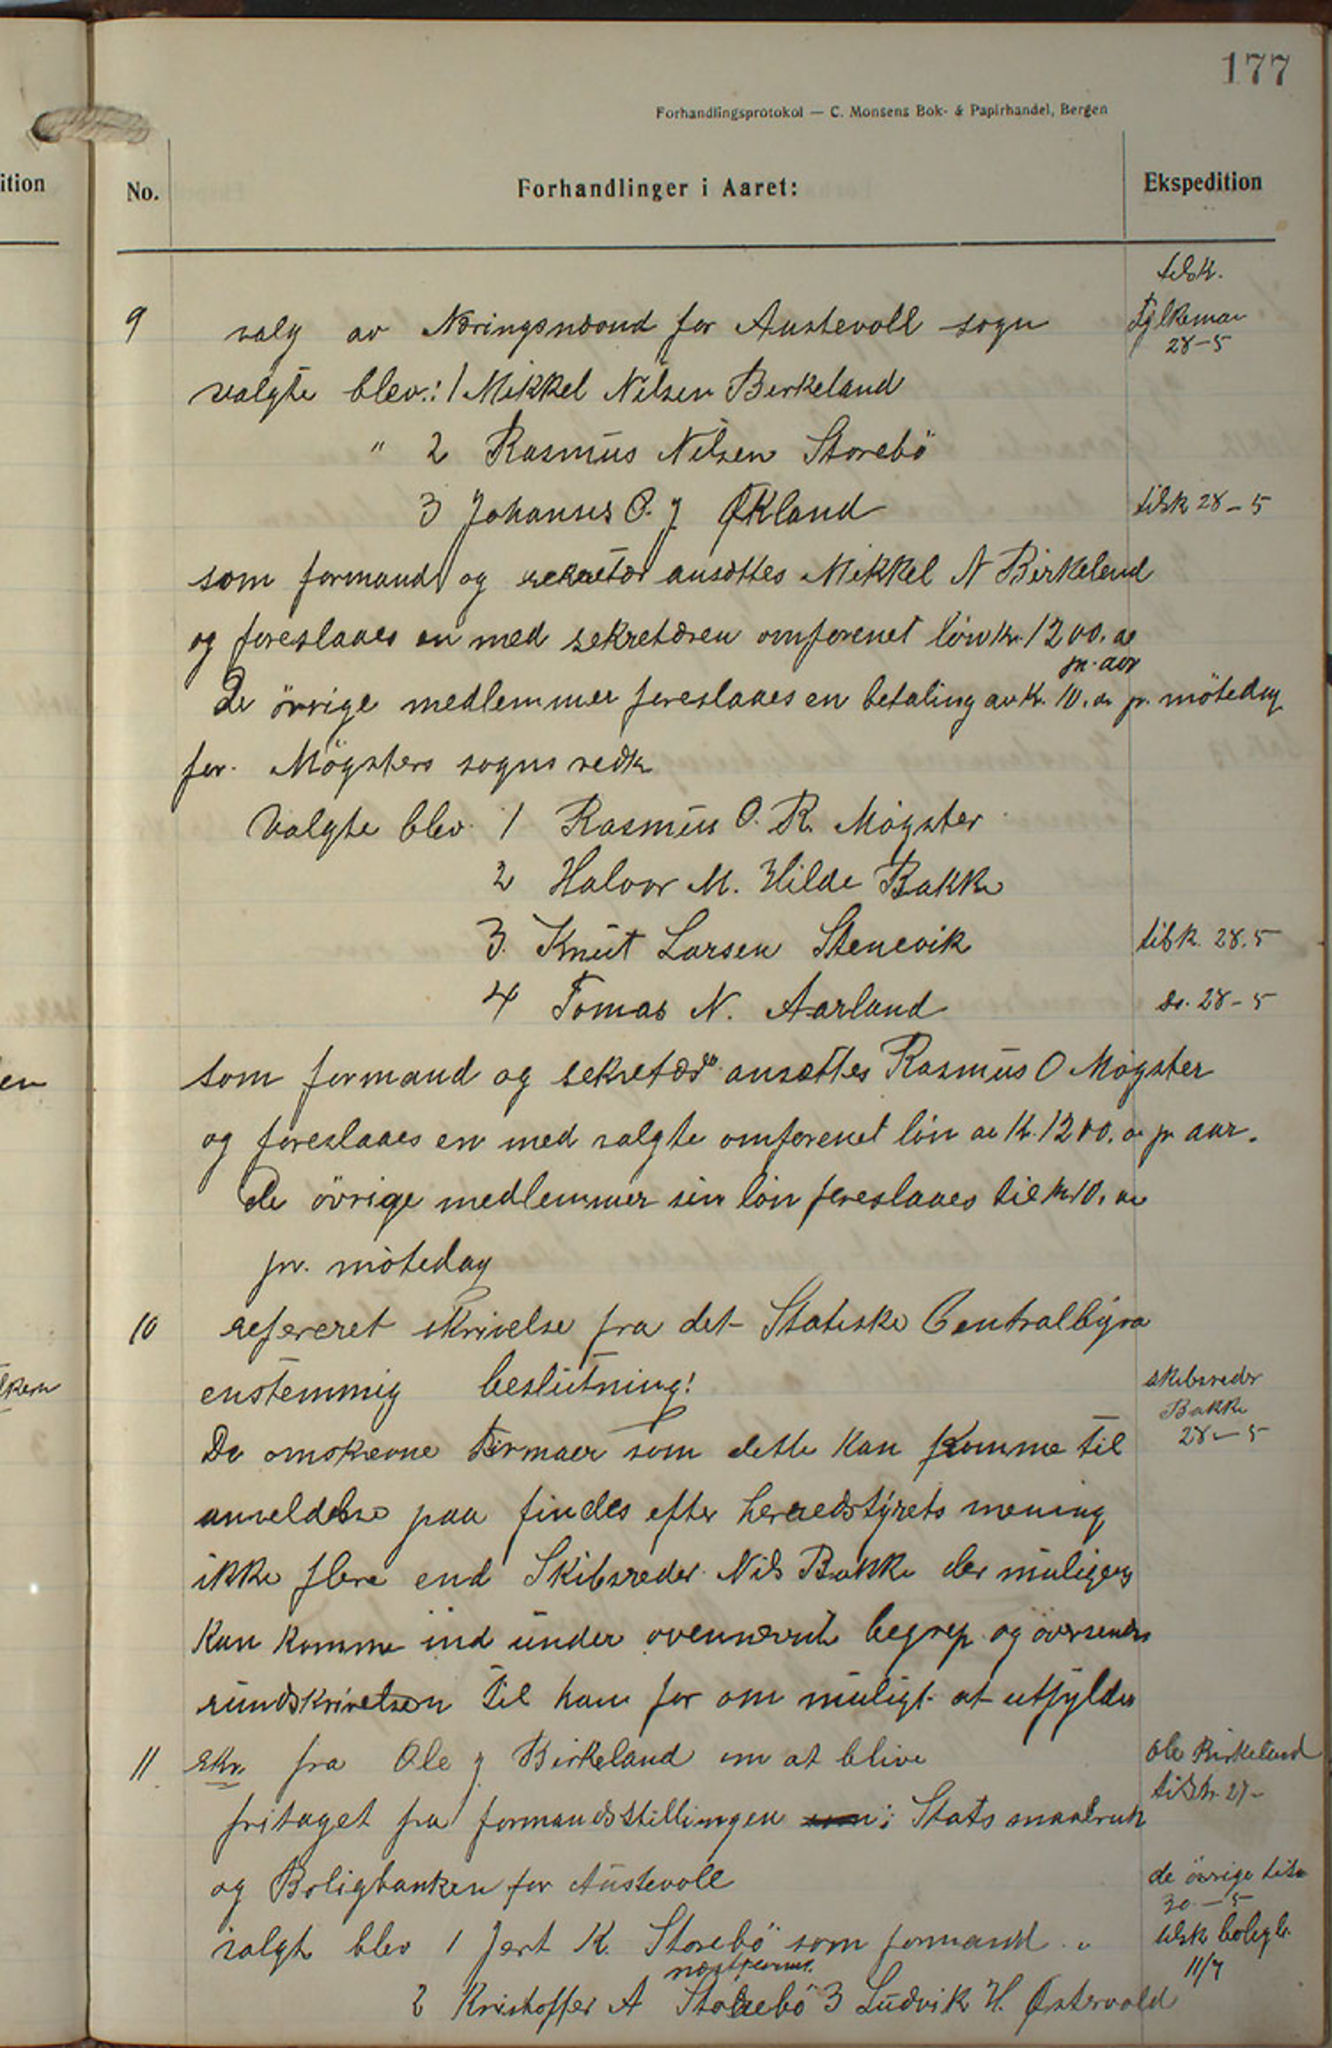 177
Forhandlingsprotokol — C. Monsens Bok- & Papirhandel, Bergen
ition
No.
Forhandlinger i Aaret:
Ekspedition
tilsk.
Fylkeman
28-5
9 valg av Næringsnævnd for Austevoll sogn
valgte blev: 1 Mikkel Nilsen Birkeland
" 2 Rasmus Nilsen Storebö
3 Johannes O. J. Økland
tilsk 28-5
som formand og sekretær ansættes Mikkel N Birkeland
og foreslaaes en med sekretæren omforenet lön kr. 1200.
pr. aar
De övrige medlemmer foreslaaes en betaling av kr. 10. pr. mötedag
for Mögsters sogns vedk
Valgte blev 1 Rasmus O. R. Mögster
2 Halvor M. Hilde Bakke
3. Knut Larsen Stenevik
tilsk. 28.5
4 Tomas N. Aarland
do. 28-5
som formand og sekretær ansættes Rasmus O Mögster
og foreslaaes en med valgte omforenet lön av kr. 1200. pr aar.
De övrige medlemmer sin lön foreslaaes til kr 10.
pr. mötedag
10 refereret skrivelse fra det Statiske Centralbyra
enstemmig beslutning!
skibsreder
Bakke
28-5
De omskrevne Firmaer som dette kan komme til
anveldelse paa findes efter herredstyrets mening
ikke flere end Skibsreder Nils Bakke der muligens
kan komme ind under ovennævnte begrep og översendes
rundskrivelsen til ham for om muligt at utfyldes
11 skr. fra Ole J Birkeland om at blive
Ole Birkeland
tilsk. 27-
fritaget fra formandsstillingen i Stats smaabruk
og Boligbanken for Austevoll
de övrige tilsk
30-5
valgt blev 1 Jert K. Storebö som formand
tilsk boligb.
11/7
næstform.
2 Kristoffer A Storebö 3 Ludvik H. Östervold